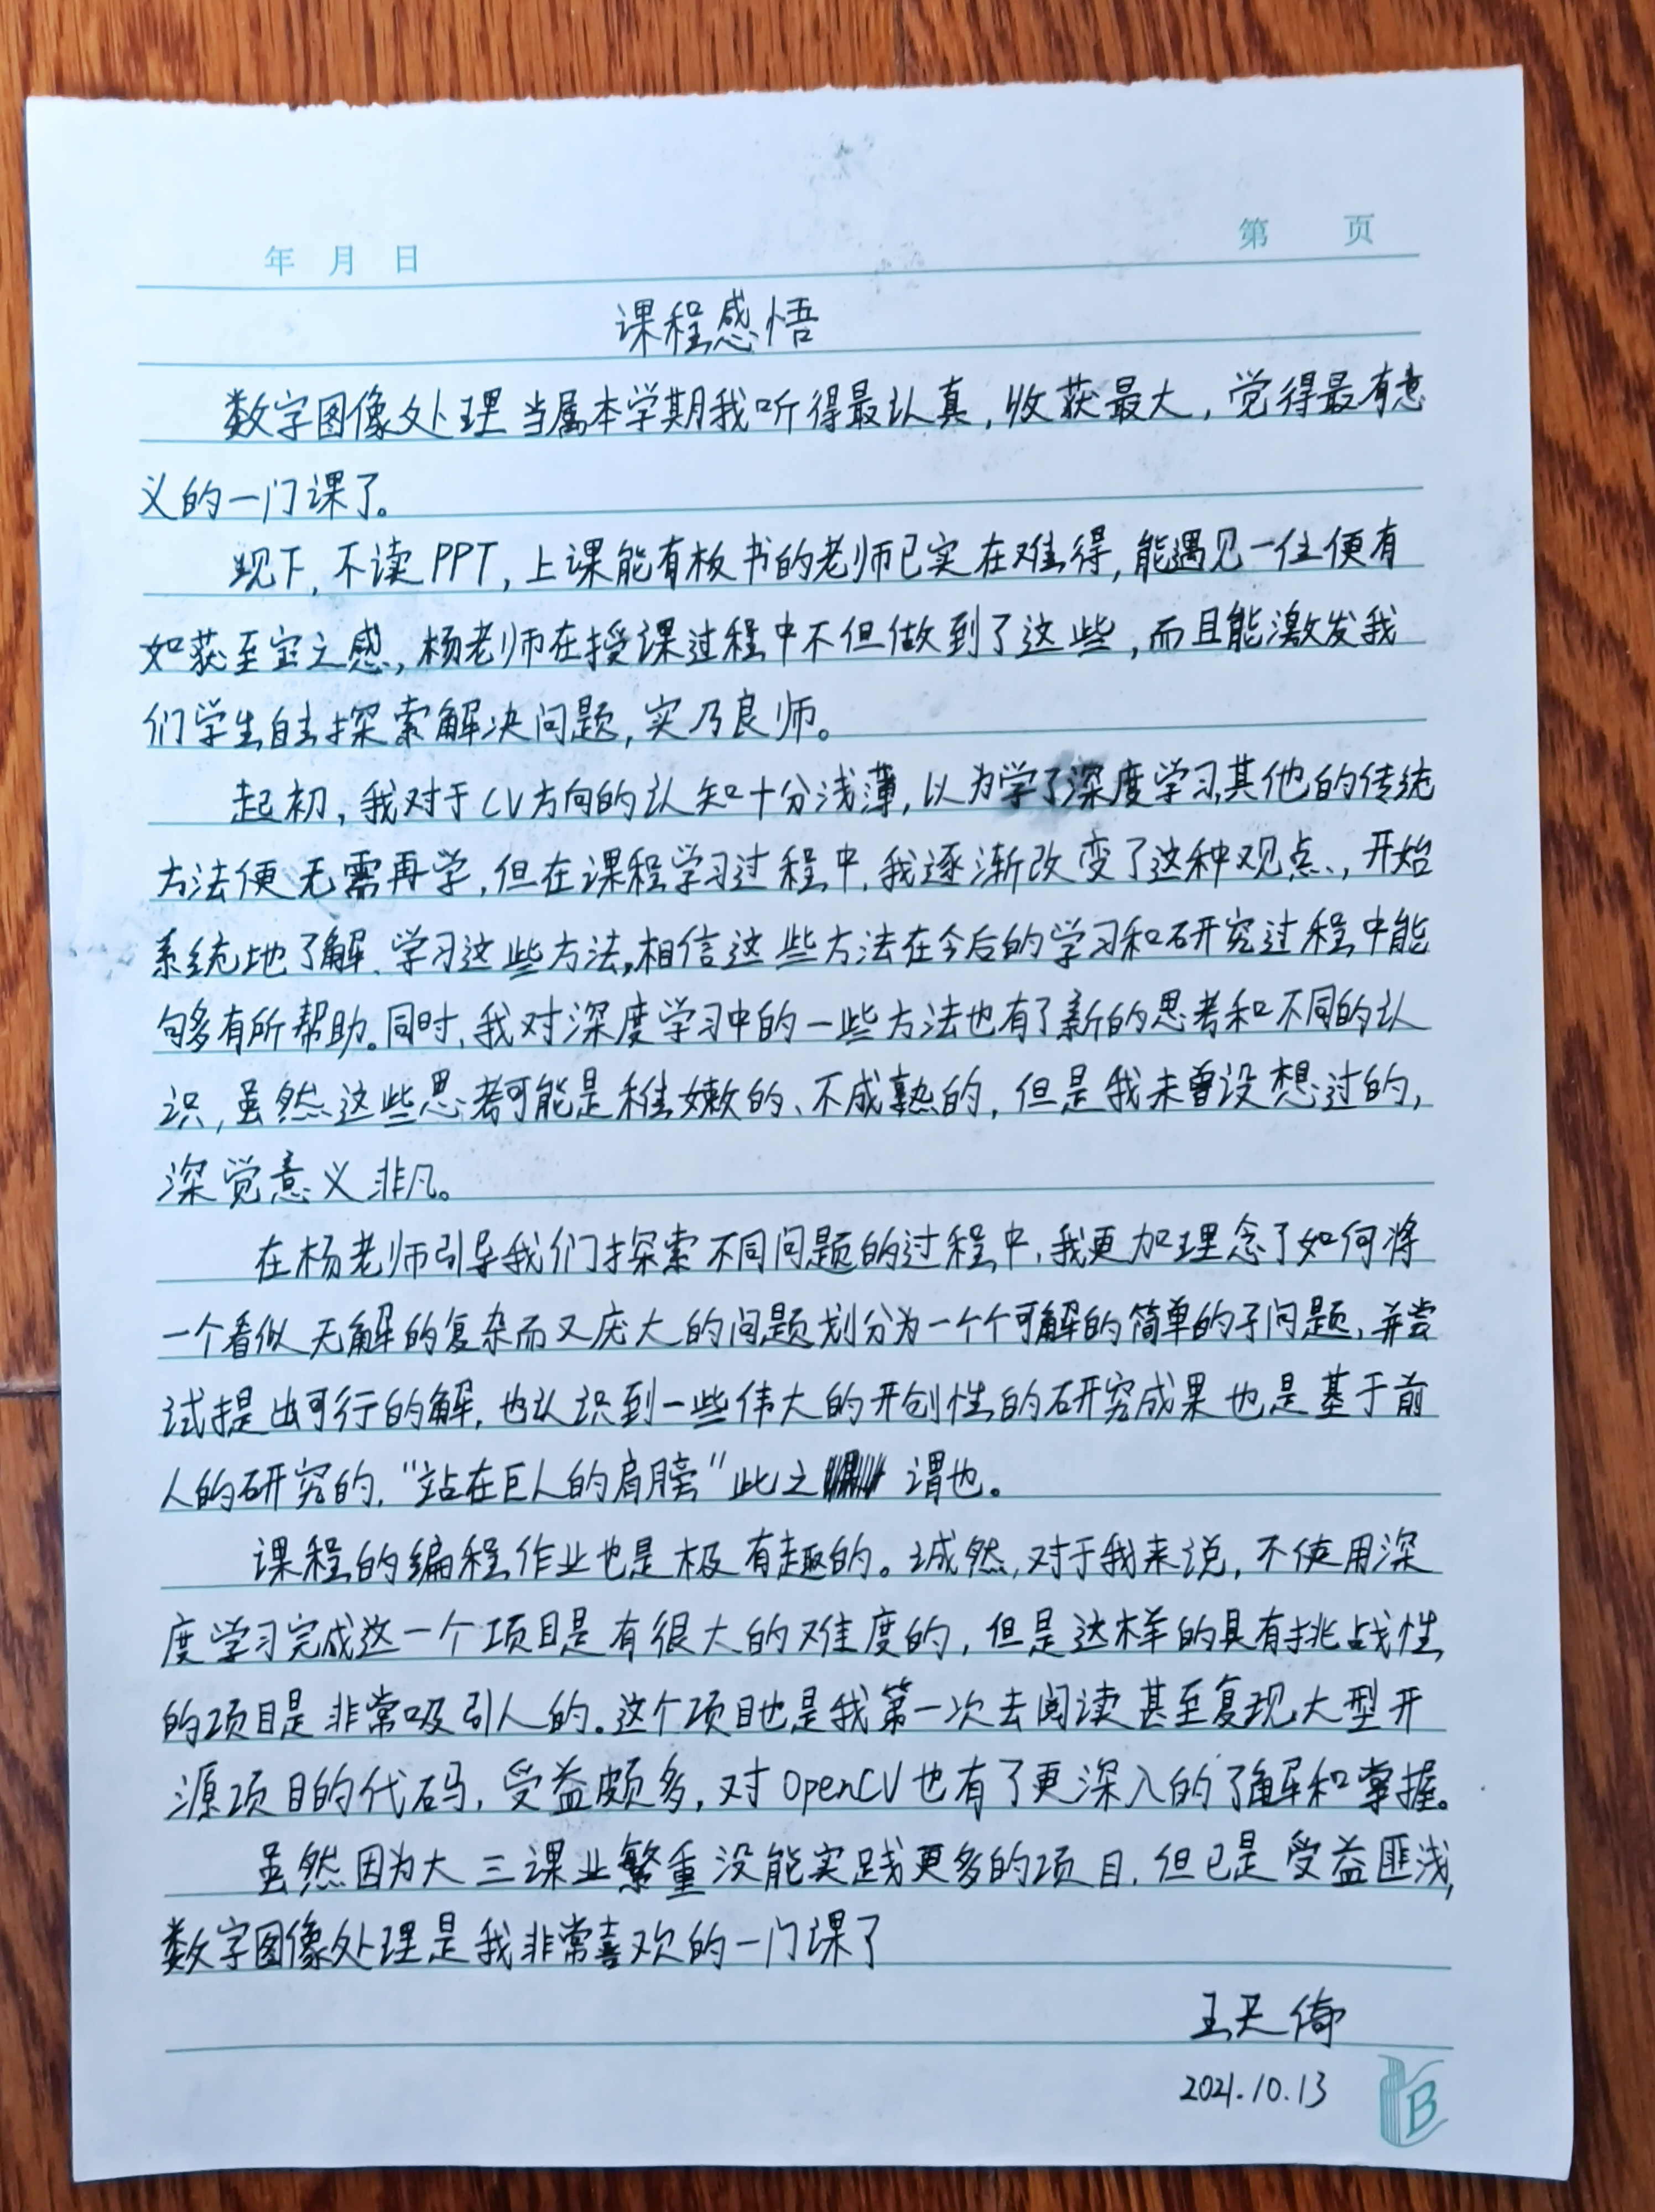 年 月 日 第 页
课程感悟
数字图像处理当属本学期我听得最认真，收获最大，觉得最有意
义的一门课了。
现下，不读PPT，上课能有板书的老师已实在难得，能遇见一位便有
如获至宝之感，杨老师在授课过程中不但做到了这些，而且能激发我
们学生自主探索解决问题，实乃良师。
起初，我对于CV方向的认知十分浅薄，以为学了深度学习，其他的传统
方法便无需再学，但在课程学习过程中，我逐渐改变了这种观点，开始
系统地了解、学习这些方法，相信这些方法在今后的学习和研究过程中能
够多有所帮助。同时，我对深度学习中的一些方法也有了新的思考和不同的认
识，虽然这些思考可能是稚嫩的、不成熟的，但是我未曾设想过的，
深觉意义非凡。
在杨老师引导我们探索不同问题的过程中，我更加理念了如何将
一个看似无解的复杂而又庞大的问题划分为一个个可解的简单的子问题，并尝
试提出可行的解，也认识到一些伟大的开创性的研究成果也是基于前
人的研究的，“站在巨人的肩膀”此之谓也。
课程的编程作业也是极有趣的。诚然，对于我来说，不使用深
度学习完成这一个项目是有很大的难度的，但是这样的具有挑战性
的项目是非常吸引人的。这个项目也是我第一次去阅读甚至复现大型开
源项目的代码，受益颇多，对OpenCV也有了更深入的了解和掌握。
虽然因为大三课业繁重没能实践更多的项目，但已是受益匪浅，
数字图像处理是我非常喜欢的一门课了
王天倚
2021.10.13
B